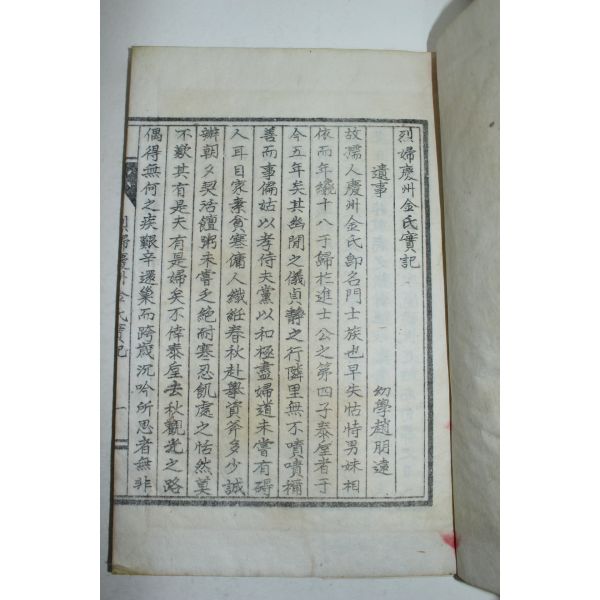 烈婦慶州金氏實記
遺事
幼學趙朋遠
故孺人慶州金氏卽名門士族也早失怙恃男妹相
依而年纔十八于歸於進士公之第四子泰垕者于
今五年矣其幽閒之儀貞靜之行隣里無不嘖嘖稱
善而事偏姑以孝侍夫黨以和極盡婦道未嘗有碍
人耳目家素貧寒傭人織紝春秋赴擧資斧多少誠
辦朝夕契活饘粥未嘗乏絶耐寒忍飢處之恬然莫
不歎其有是夫有是婦矣不倖泰垕去秋觀光之路
偶得無何之疾艱辛還巢而跨歲沉吟所思者無非
烈婦慶州金氏實記
一